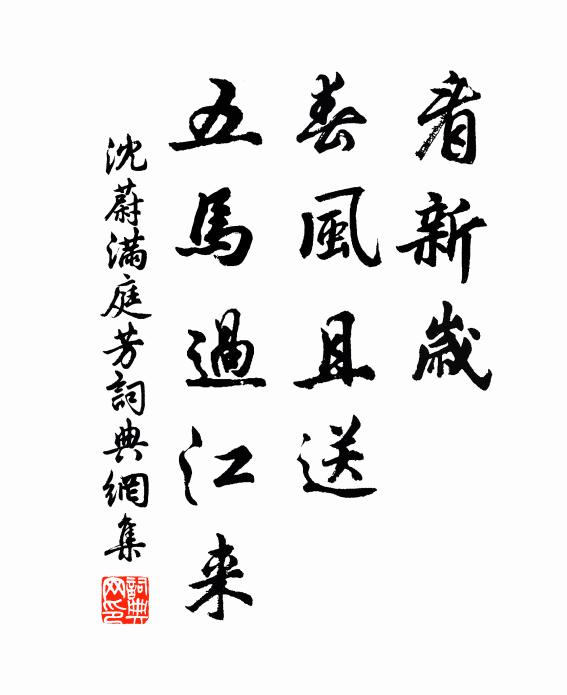 看新歲
春風且送
五馬過江来
沈蔚滿庭芳詞典網集
詞典网印